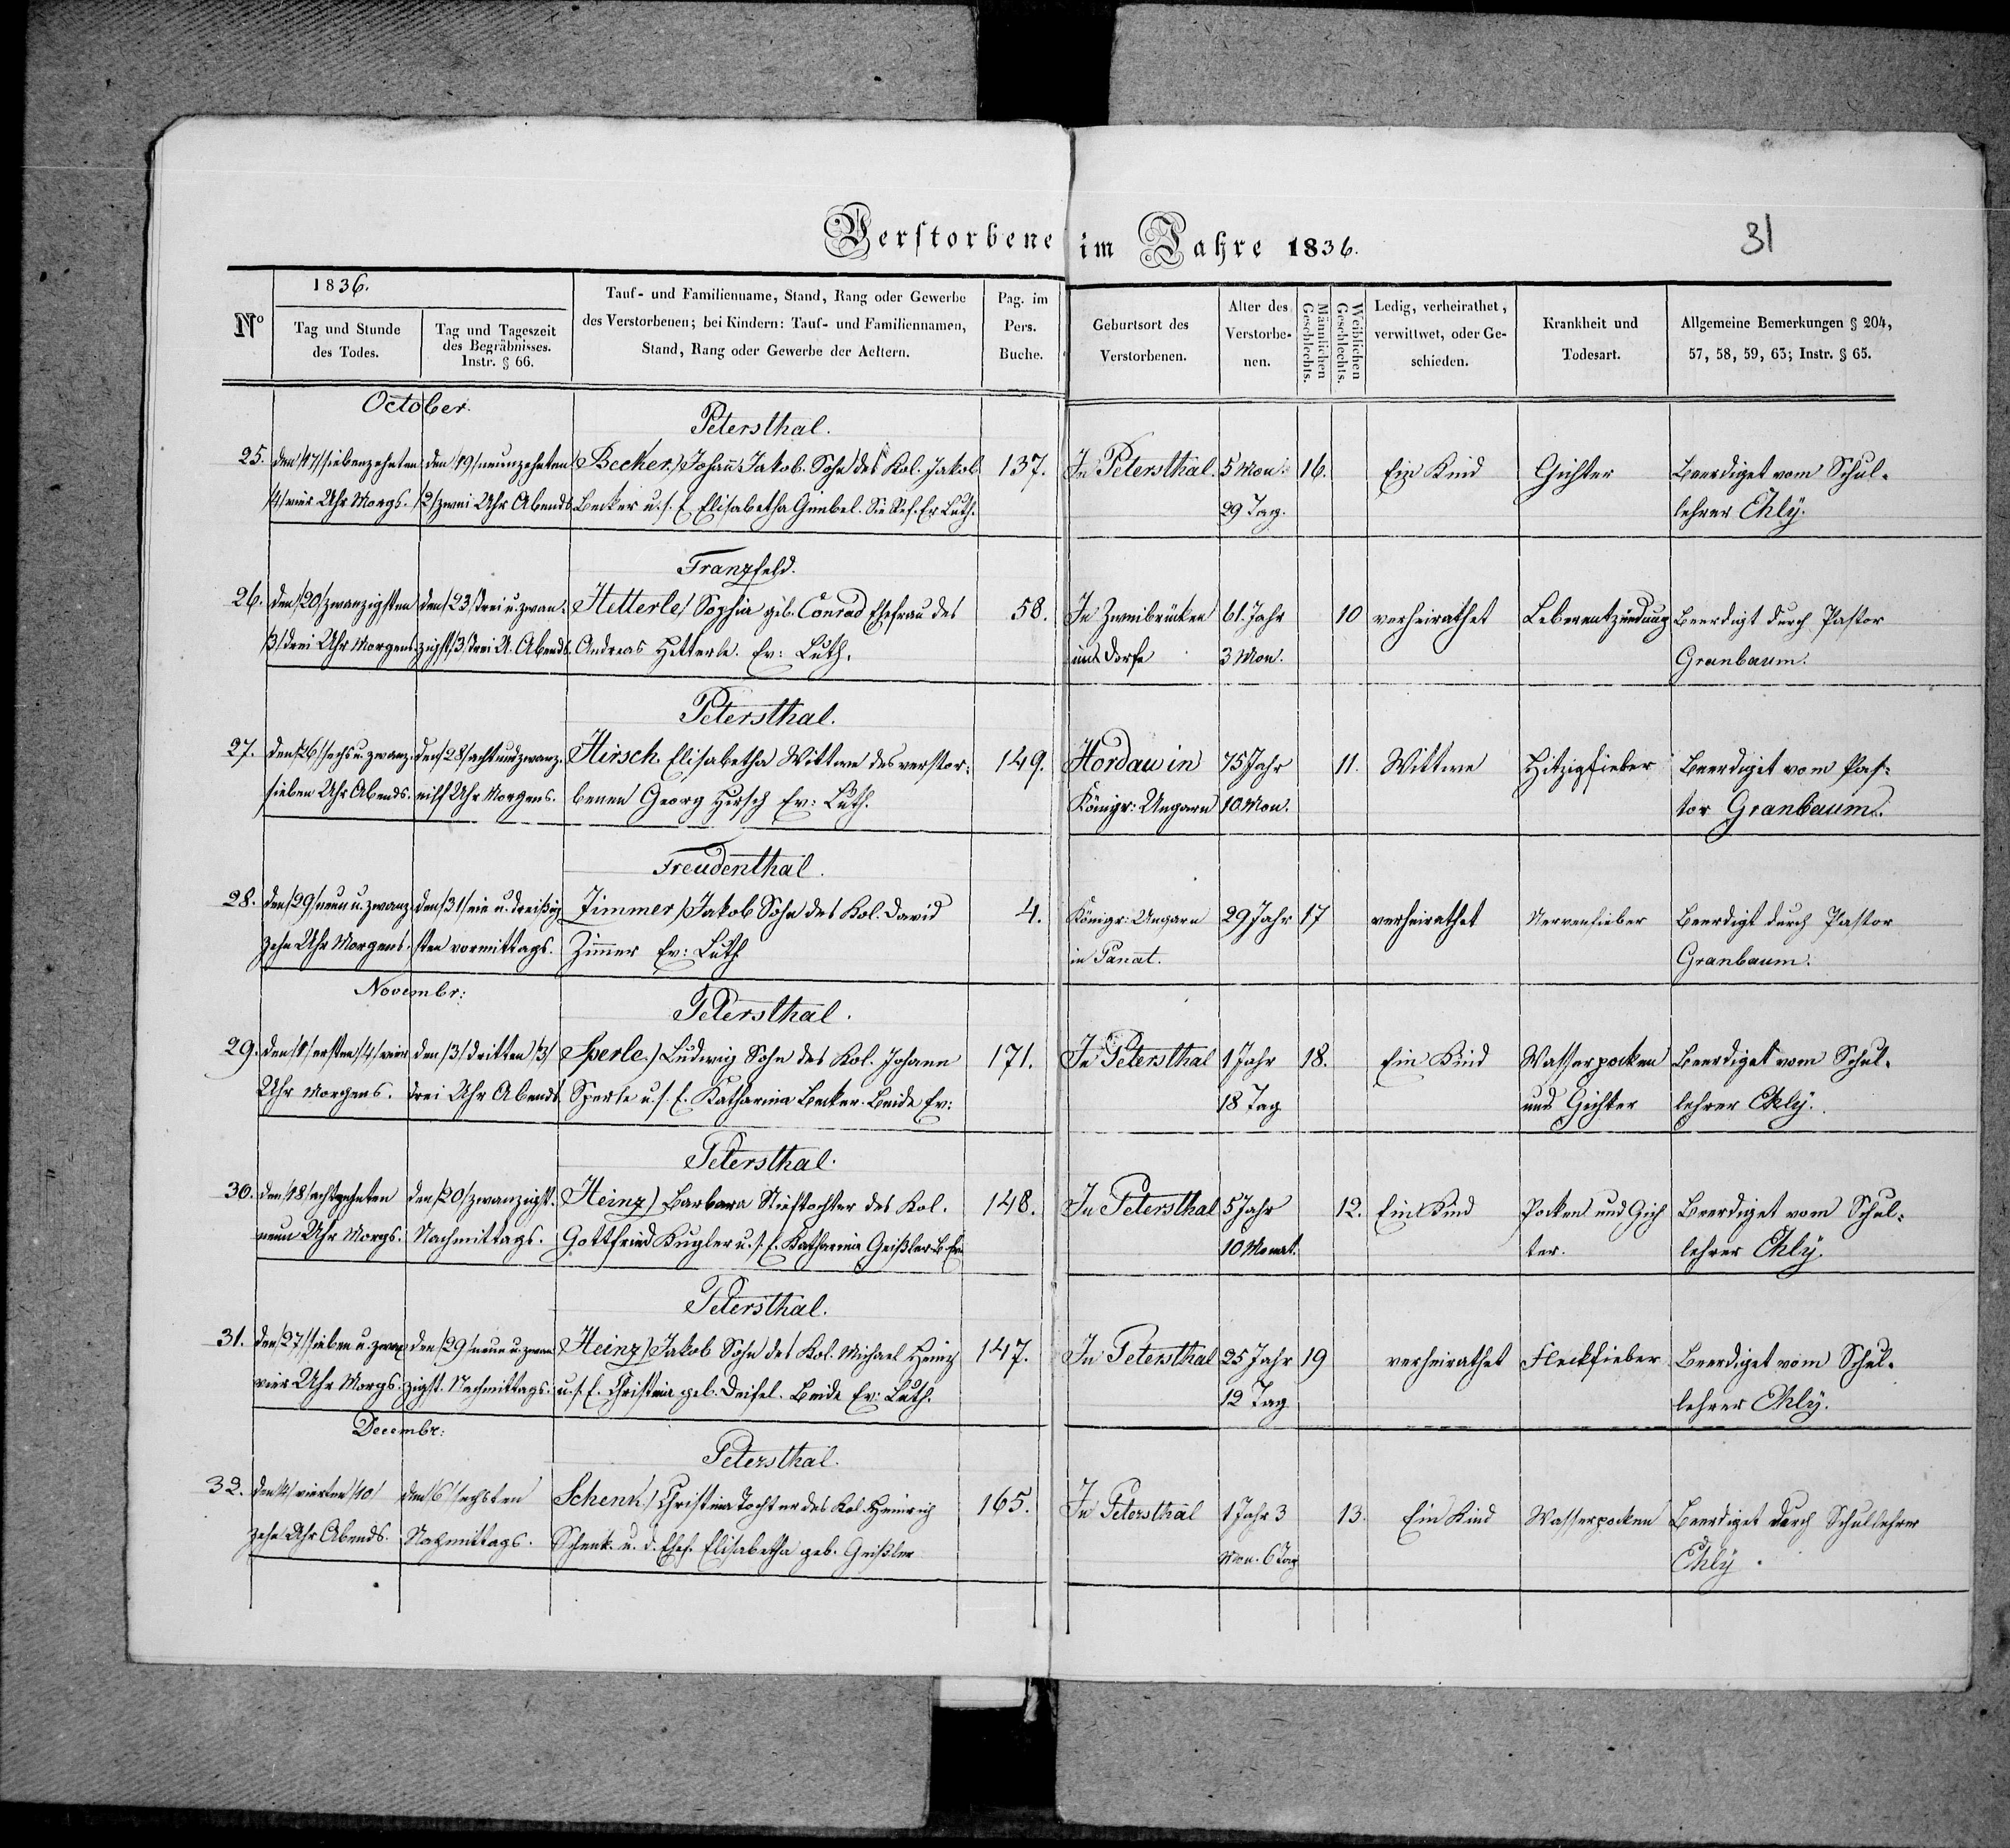 Verstorbene im Jahre 1836.
31
Nº
1836.
Tag und Stunde des Todes.
Tag und Tageszeit des Begräbnisses. Instr. § 66.
Tauf- und Familienname, Stand, Rang oder Gewerbe
des Verstorbenen; bei Kindern: Tauf- und Familiennamen,
Stand, Rang oder Gewerbe der Aeltern.
Pag. im Pers. Buche.
Geburtsort des Verstorbenen.
Alter des Verstorbenen.
Männlichen Geschlechts.
Weiblichen Geschlechts.
Ledig, verheirathet, verwittwet, oder Geschieden.
Krankheit und Todesart.
Allgemeine Bemerkungen § 204, 57, 58, 59, 63; Instr. § 65.
October.
Petersthal.
25. den /17/ siebenzehnten den /19/ neunzehnten Becker,/ Johan̄ Jakob. Sohn des Kol. Jakob 137. In Petersthal. 5 Mon: 16. Ein Kind Gichter Beerdiget vom Schul-
/4/ vier Uhr Morgs. /2/ zwei Uhr Abends. Becker u. s. E Elisabetha Gimbel. Sie Ref. Er Luth. 29 Tag. lehrer Ehlÿ.
Franzfeld.
26. den /20/ zwanzigsten den /23/ drei u. zwan- Hetterle/ Sophia geb. Conrad Ehefrau des 58. In Zweibrücken 61. Jahr 10 verheirathet Leberentzündung Beerdigt durch Pastor
/3/ drei Uhr Morgens. zigst. /3/ drei U. Abends. Andreas Hetterle. Ev: Luth. 3 Mon. Granbaum.
Petersthal.
27. den /26/ sechs u. zwanz. den /28/ acht und zwanz. Hirsch Elisabetha Wittwe des verstor- 149. Hordau in 75 Jahr 11. Wittwe Hitzigfieber Beerdiget vom Pas-
sieben Uhr Abends. eilf Uhr Morgens. benen Georg Hirsch Ev: Luth. Königr: Ungarn 10 Mon. tor Granbaum.
Freudenthal.
28. den /29/ neun u. zwanz. den /31/ ein u. dreißig Zimmer,/ Jakob Sohn des Kol. David 4. Königr: Ungarn 29 Jahr 17 verheirathet Nervenfieber Beerdigt durch Pastor
zehn Uhr Morgens. sten vormittags. Zim̄er Ev: Luth in Panat. Granbaum.
Novembr:
Petersthal.
29. den /1/ ersten /4/ vier den /3/ dritten /3/ Sperle,/ Ludwig Sohn des Kol. Johann 171. In Petersthal 1 Jahr 18. Ein Kind Wasserpocken Beerdiget vom Schul-
Uhr Morgens. drei Uhr Abends. Sperle u. s. E. Katharina Becker. Beide Ev: 18 Tag und Gichter lehrer Ehlÿ.
Petersthal.
30. den /18/ achtzehnten den /20/ zwanzigst. Heinz) Barbara Stieftochter des Kol. 148. In Petersthal 5 Jahr 12. Ein Kind Pocken und Gich Beerdiget vom Schul-
neun Uhr Morgs. Nachmittags. Gottfried Kugler u. s. E. Katharina Geißler. B. Ev: 10 Monat. ter. lehrer Ehlÿ.
Petersthal.
31. den /27/ sieben u. zwan den /29/ neun u. zwan Heinz) Jakob Sohn des Kol. Michael Heinz 147. In Petersthal 25 Jahr 19 verheirathet Fleckfieber Beerdiget vom Schul-
vier Uhr Morgs. zigst. Nachmittags. u. s. E. Christina geb. Beide Ev: Luth. 12 Tag lehrer Ehlÿ.
Decembr:
Petersthal.
32. den /4/ vierten /10/ den /6/ sechsten Schenk./ Christina Tochter des Kol. Heinrich 165. In Petersthal 1 Jahr 3 13. Ein Kind Wasserpocken Beerdiget durch Schullehrer
zehn Uhr Abends. Nachmittags. Schenk. u. d. Ehef. Elisabetha geb. Geißler Mon. 6 Tag Ehlÿ.